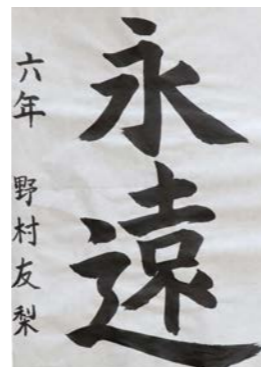 永遠
六年 野村友梨